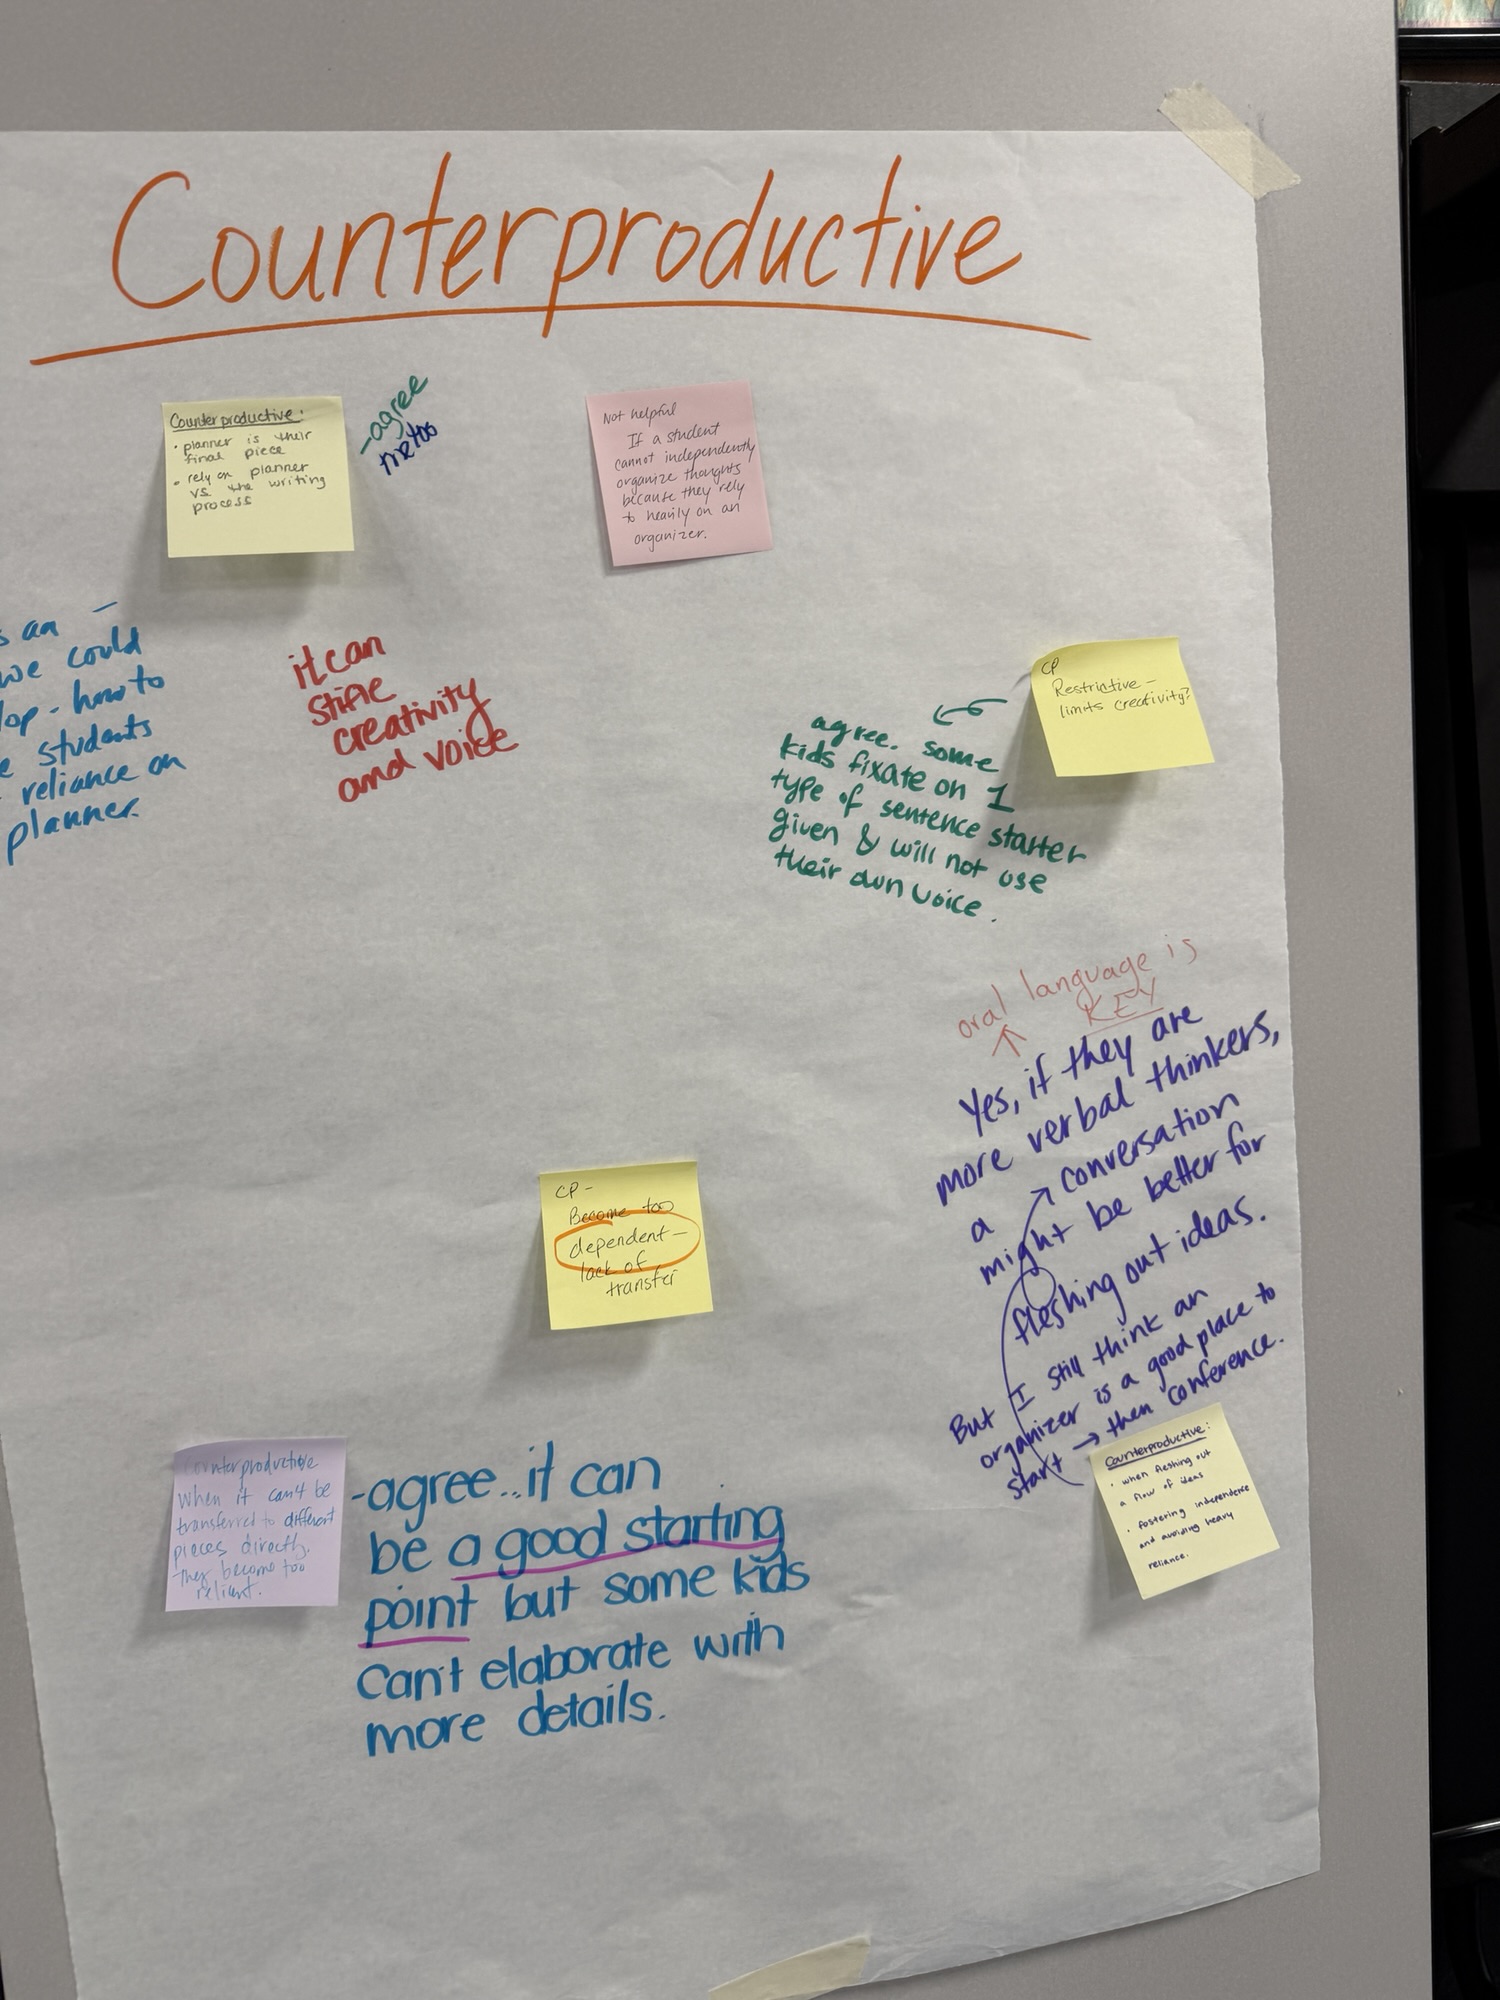 Counterproductive
Counterproductive:
• planner is their
final piece
• rely on planner
vs the writing
process
-agree
me too
Not helpful
If a student
cannot independently
organize thoughts
because they rely
to heavily on an
organizer.
an
we could
how to
students
reliance on
planner.
it can
stifle
creativity
and voice
CP
Restrictive –
limits creativity?
agree. some
kids fixate on 1
type of sentence starter
given & will not use
their own voice.
oral language is
KEY
Yes, if they are
more verbal thinkers,
a conversation
might be better for
fleshing out ideas.
But I still think an
organizer is a good place to
start → then conference.
Counterproductive:
• when fleshing out
a flow of ideas
• fostering independence
and avoiding heavy
reliance.
CP –
Become too
dependent –
lack of
transfer
Counterproductive
When it can't be
transferred to different
pieces directly.
They become too
reliant.
-agree...it can
be a good starting
point but some kids
can't elaborate with
more details.